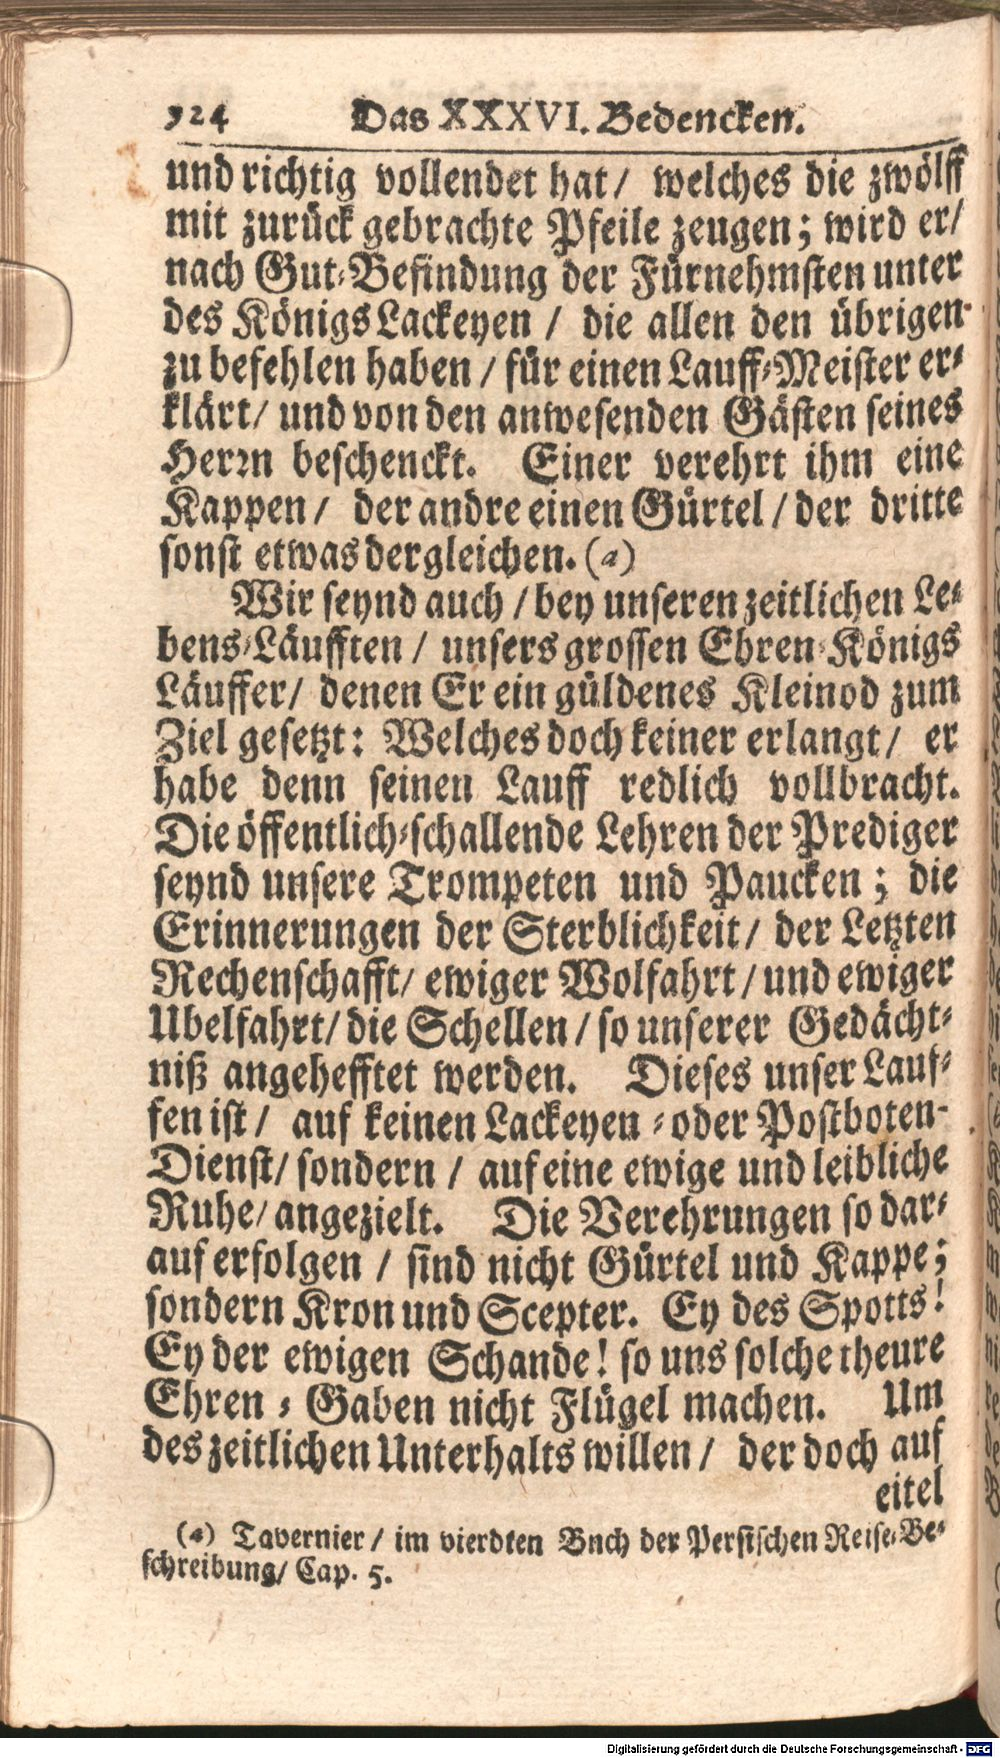 924 Das XXXVI. Bedencken.
und richtig vollendet hat/ welches die zwölff
mit zurück gebrachte Pfeile zeugen; wird er/
nach Gut-Befindung der Fürnehmsten unter
des Königs Lackeyen / die allen den übrigen
zu befehlen haben / für einen Lauff-Meister er-
klärt/ und von den anwesenden Gästen seines
Herrn beschenckt. Einer verehrt ihm eine
Kappen / der andre einen Gürtel / der dritte
sonst etwas dergleichen. (a)
Wir seynd auch / bey unseren zeitlichen Le-
bens-Läufften / unsers grossen Ehren-Königs
Läuffer/ denen Er ein güldenes Kleinod zum
Ziel gesetzt: Welches doch keiner erlangt/ er
habe denn seinen Lauff redlich vollbracht.
Die öffentlich-schallende Lehren der Prediger
seynd unsere Trompeten und Paucken; die
Erinnerungen der Sterblichkeit/ der Letzten
Rechenschafft/ ewiger Wolfahrt / und ewiger
Ubelfahrt/ die Schellen / so unserer Gedächt-
niß angehefftet werden. Dieses unser Lauf-
fen ist / auf keinen Lackeyen- oder Postboten-
Dienst/ sondern / auf eine ewige und leibliche
Ruhe/ angezielt. Die Verehrungen so dar-
auf erfolgen / sind nicht Gürtel und Kappe;
sondern Kron und Scepter. Ey des Spotts!
Ey der ewigen Schande! so uns solche theure
Ehren-Gaben nicht Flügel machen. Um
des zeitlichen Unterhalts willen / der doch auf
eitel
(a) Tavernier / im vierdten Bnch der Persischen Reise-Be-
schreibung/ Cap. 5.
Digitalisierung gefördert durch die Deutsche Forschungsgemeinschaft - DFG